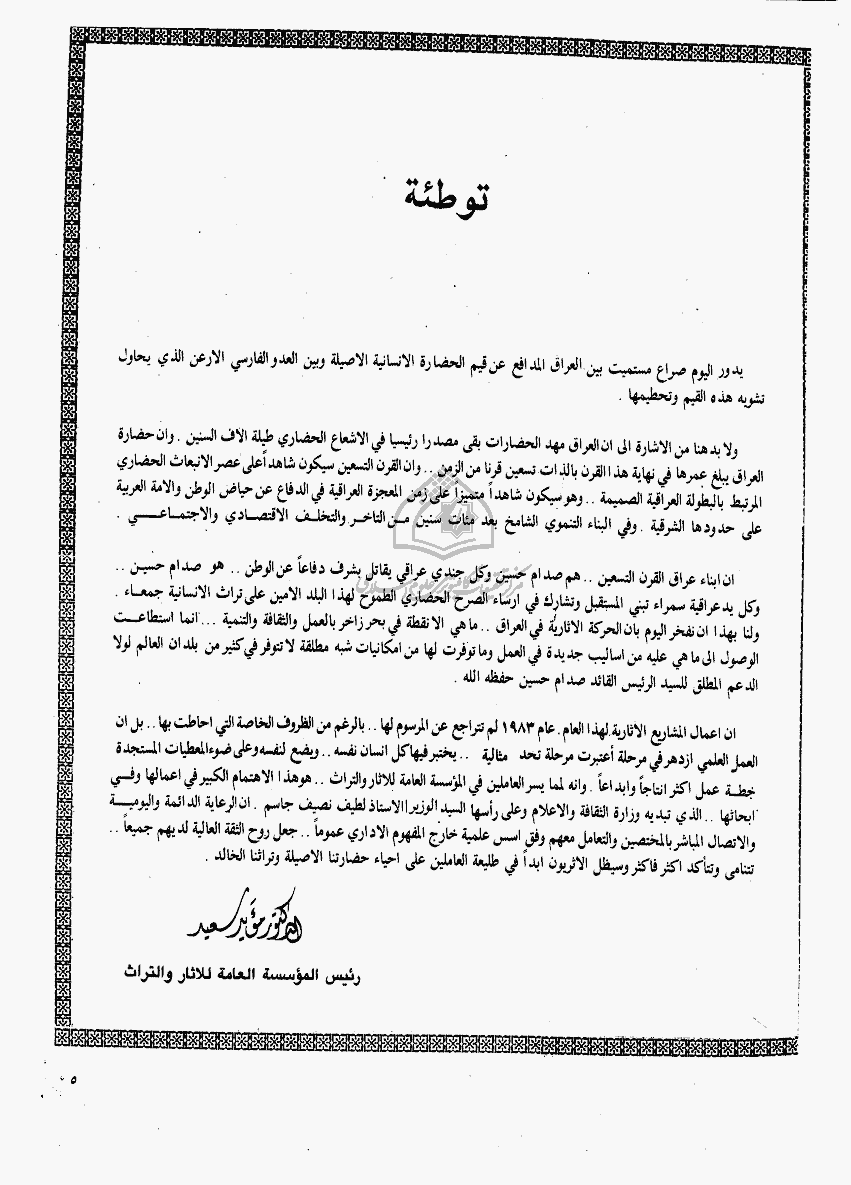 توطئة
يدور اليوم صراع مستميت بين العراق المدافع عن قيم الحضارة الانسانية الاصيلة وبين العدو الفارسي الارعن الذي يحاول
تشويه هذه القيم وتحطيمها .
ولا بد هنا من الاشارة الى ان العراق مهد الحضارات بقى مصدرا رئيسيا في الاشعاع الحضاري طيلة الاف السنين . وان حضارة
العراق يبلغ عمرها في نهاية هذا القرن بالذات تسعين قرنا من الزمن .. وان القرن التسعين سيكون شاهداً على عصر الانبعاث الحضاري
المرتبط بالبطولة العراقية الصميمة .. وهو سيكون شاهداً متميزاً على زمن المعجزة العراقية في الدفاع عن حياض الوطن والامة العربية
على حدودها الشرقية . وفي البناء التنموي الشامخ بعد مئات سنين من التاخر والتخلف الاقتصادي والاجتماعي .
ان ابناء عراق القرن التسعين .. هم صدام حسين وكل جندي عراقي يقاتل بشرف دفاعاً عن الوطن .. هو صدام حسين ..
وكل يد عراقية سمراء تبني المستقبل وتشارك في ارساء الصرح الحضاري الطموح لهذا البلد الامين على تراث الانسانية جمعاء .
ولنا بهذا ان نفخر اليوم بان الحركة الاثارية في العراق .. ما هي الا نقطة في بحر زاخر بالعمل والثقافة والتنمية ... انما استطاعت
الوصول الى ما هي عليه من اساليب جديدة في العمل وما توفرت لها من امكانيات شبه مطلقة لا تتوفر في كثير من بلدان العالم لولا
الدعم المطلق للسيد الرئيس القائد صدام حسين حفظه الله .
ان اعمال المشاريع الاثارية لهذا العام . عام ١٩٨٣ لم تتراجع عن المرسوم لها .. بالرغم من الظروف الخاصة التي احاطت بها .. بل ان
العمل العلمي ازدهر في مرحلة أعتبرت مرحلة تحد مثالية .. يختبر فيها كل انسان نفسه .. ويضع لنفسه وعلى ضوء المعطيات المستجدة
خطة عمل اكثر انتاجاً وابداعاً . وانه لما يسر العاملين في المؤسسة العامة للاثار والتراث .. هو هذا الاهتمام الكبير في اعمالها وفي
ابحاثها .. الذي تبديه وزارة الثقافة والاعلام وعلى رأسها السيد الوزير الاستاذ لطيف نصيف جاسم . ان الرعاية الدائمة واليومية
والاتصال المباشر بالمختصين والتعامل معهم وفق اسس علمية خارج المفهوم الاداري عموماً .. جعل روح الثقة العالية لديهم جميعاً ..
تتنامى وتتأكد اكثر فاكثر وسيظل الاثريون ابداً في طليعة العاملين على احياء حضارتنا الاصيلة وتراثنا الخالد .
الدكتور مؤيد سعيد
رئيس المؤسسة العامة للاثار والتراث
٥